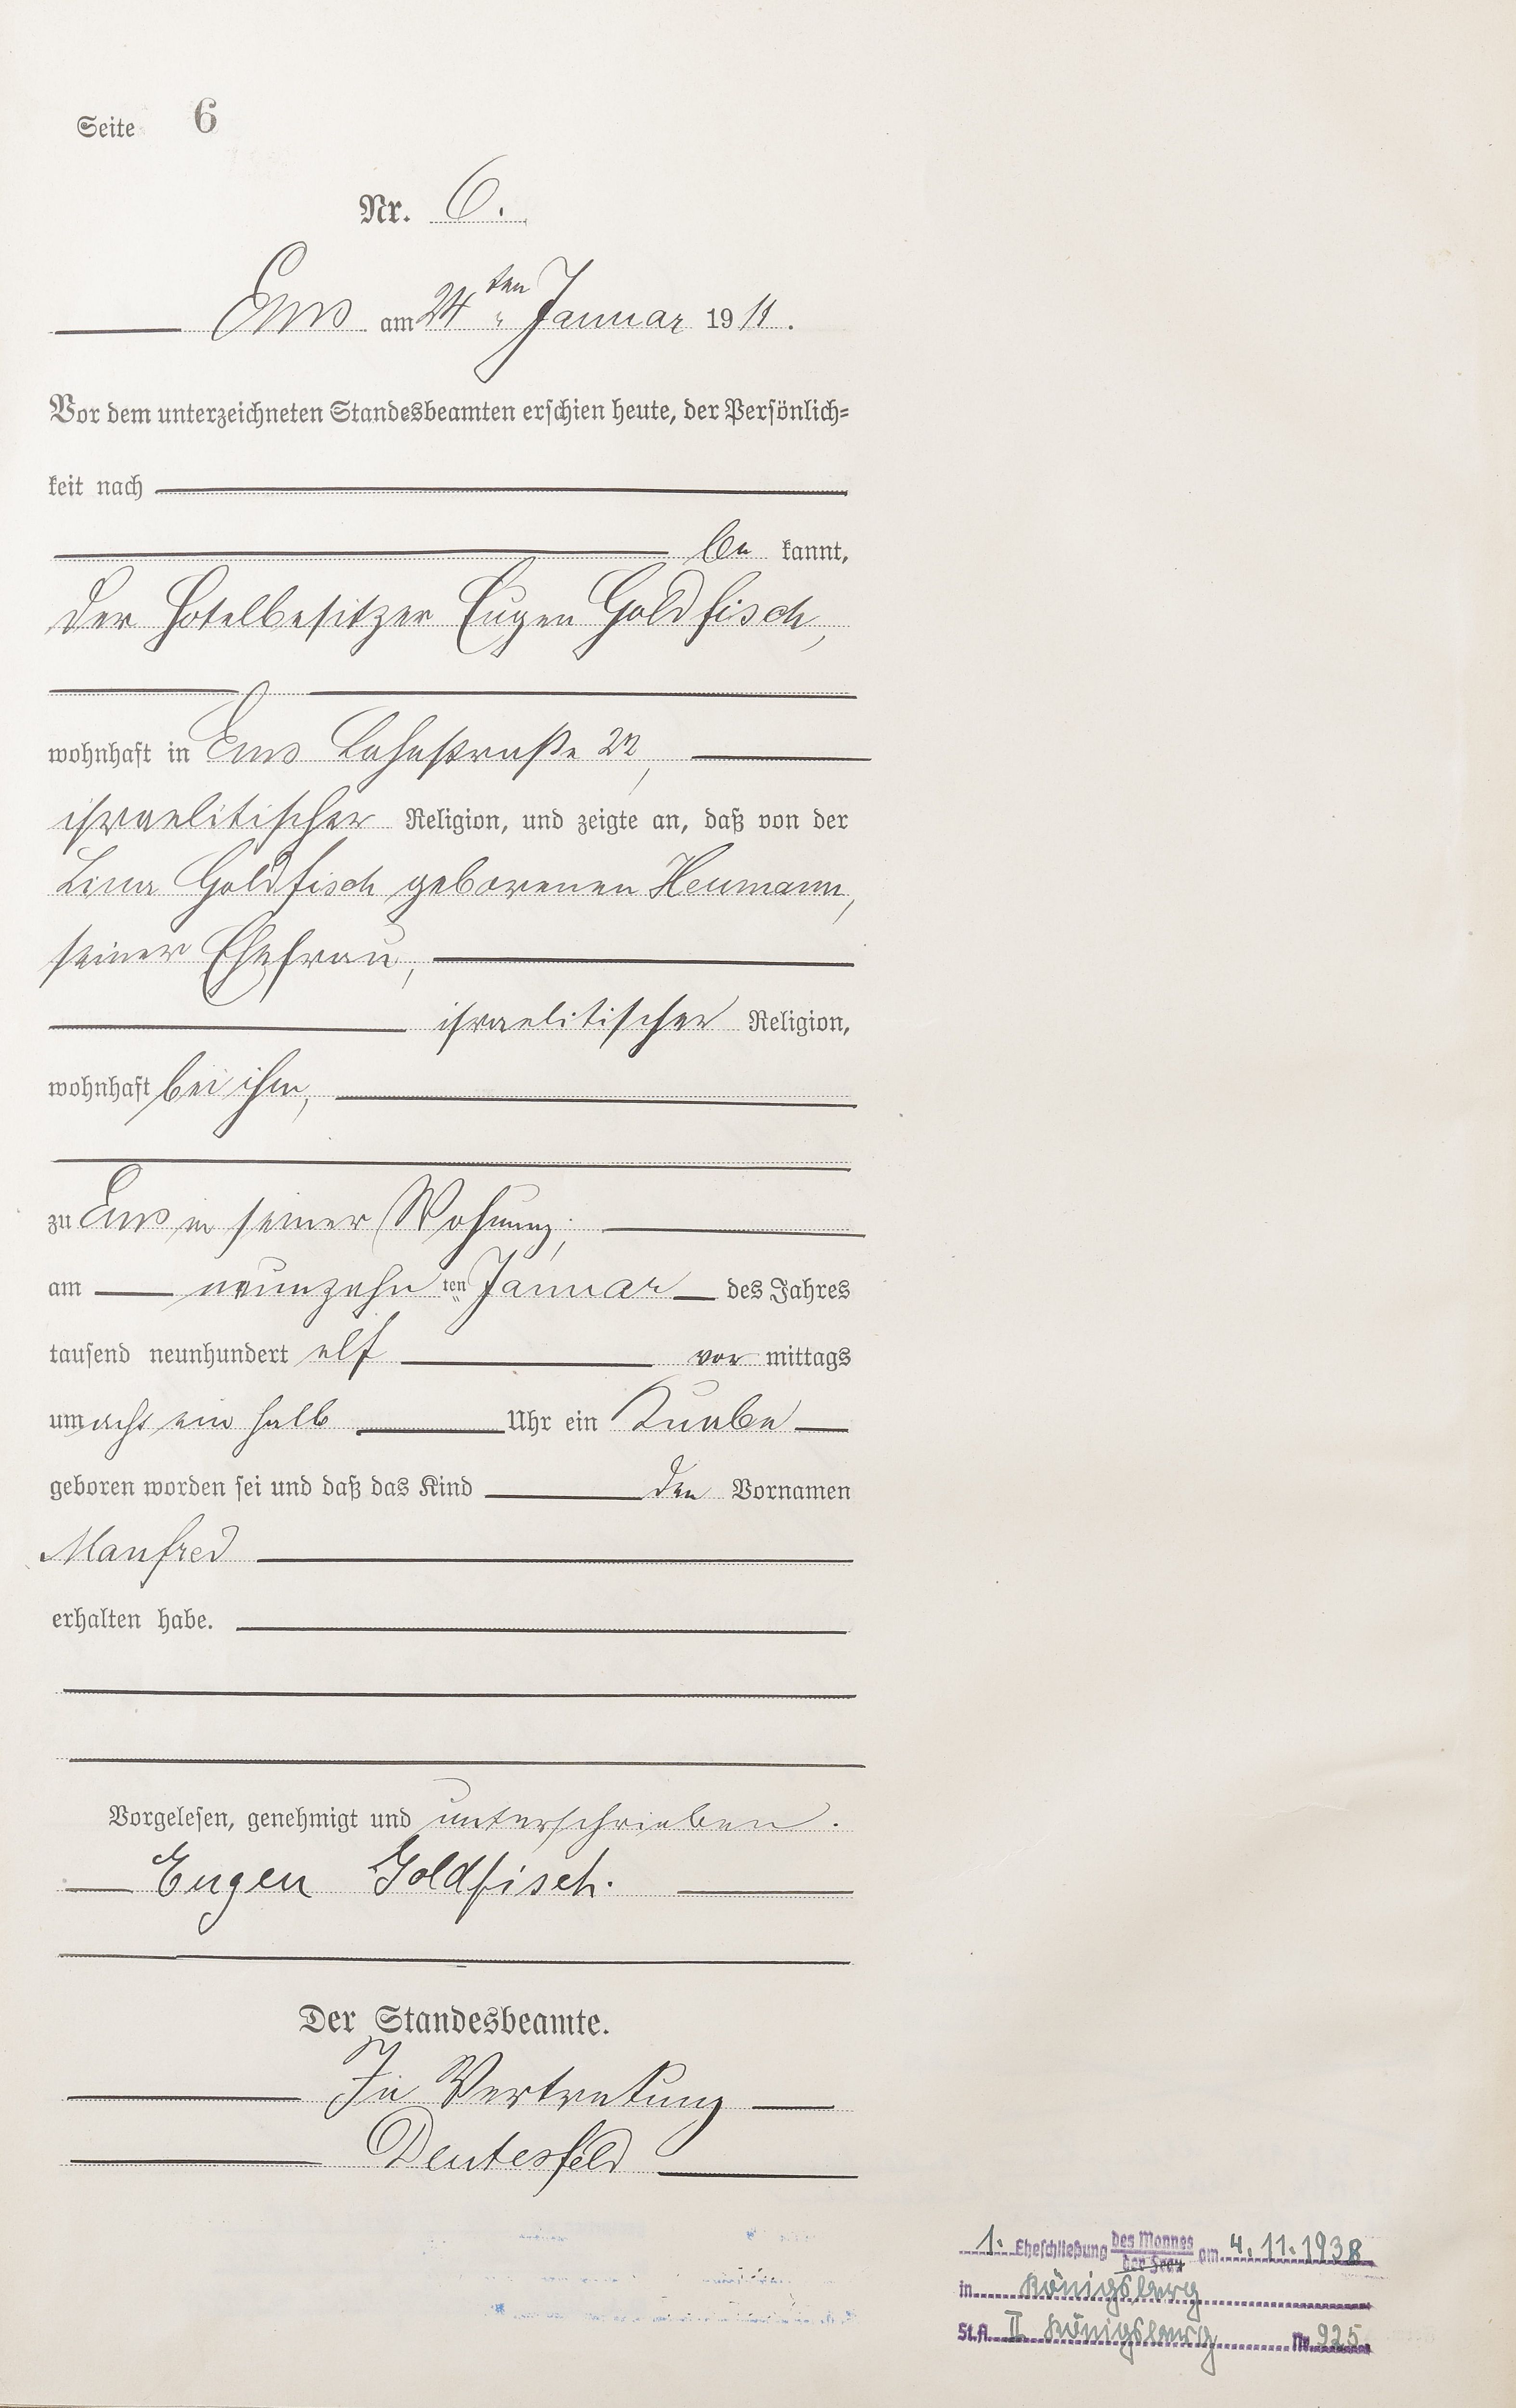 Seite 6
Nr. 6.
Ems am 24ten Januar 1911.
Vor dem unterzeichneten Standesbeamten erschien heute, der Persönlich-
keit nach
be kannt,
der Hotelbesitzer Eugen Goldfisch,
wohnhaft in Ems Lahnstraße 22,
israelitischer Religion, und zeigte an, daß von der
Lina Goldfisch geborenen Heumann,
seiner Ehefrau,
israelitischer Religion,
wohnhaft bei ihm,
zu Ems in seiner Wohnung,
am neunzehn ten Januar des Jahres
tausend neunhundert elf vor mittags
um acht ein halb Uhr ein Knabe
geboren worden sei und daß das Kind den Vornamen
Manfred
erhalten habe.
Vorgelesen, genehmigt und unterschrieben.
Eugen Goldfisch.
Der Standesbeamte.
In Vertretung
Deutesfeld
1. Eheschließung des Mannes am 4.11.1938
der Frau
in Königsberg
St.A. II Königsberg Nr. 925